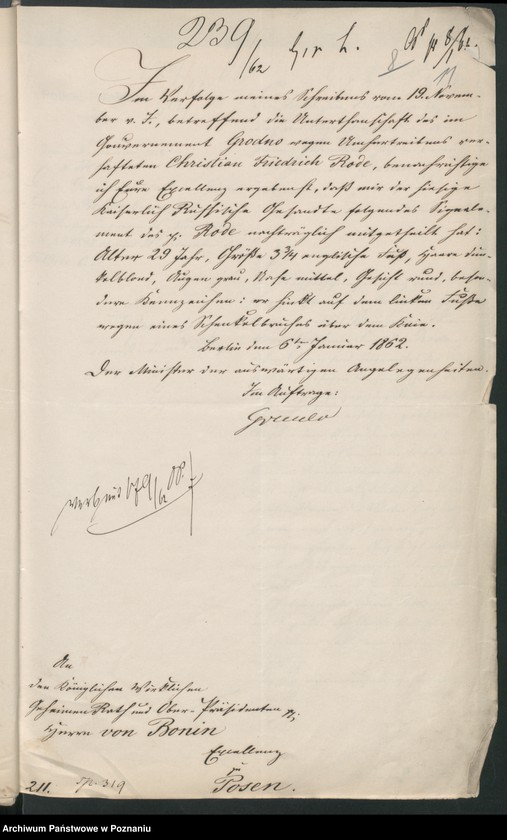 239
/62
Im Verfolge meines Schreibens vom 19. Novem-
ber v. J., betreffend die Unterthanschaft des im
Gouvernement Grodno wegen Umhertreibens ver-
hafteten Christian Friedrich Rode, benachrichtige
ich Eure Excellenz ergebenst, daß mir der hiesige
Kaiserlich Russische Gesandte folgendes Signale-
ment des p. Rode nachträglich mitgetheilt hat:
Alter 29 Jahr, Größe 5 3/4 englische Fuß, Haare dun-
kelblond, Augen grau, Nase mittel, Gesicht rund, beson-
dere Kennzeichen: er hinkt auf dem linken Fuße
wegen eines Schenkelbruches über dem Knie.
Berlin den 6ten Januar 1862.
Der Minister der auswärtigen Angelegenheiten.
Im Auftrage:
An
den Königlichen Wirklichen
Geheimen Rath und Ober-Präsidenten
Herrn von Bonin
Excellenz
Posen.
211.
Archiwum Państwowe w Poznaniu